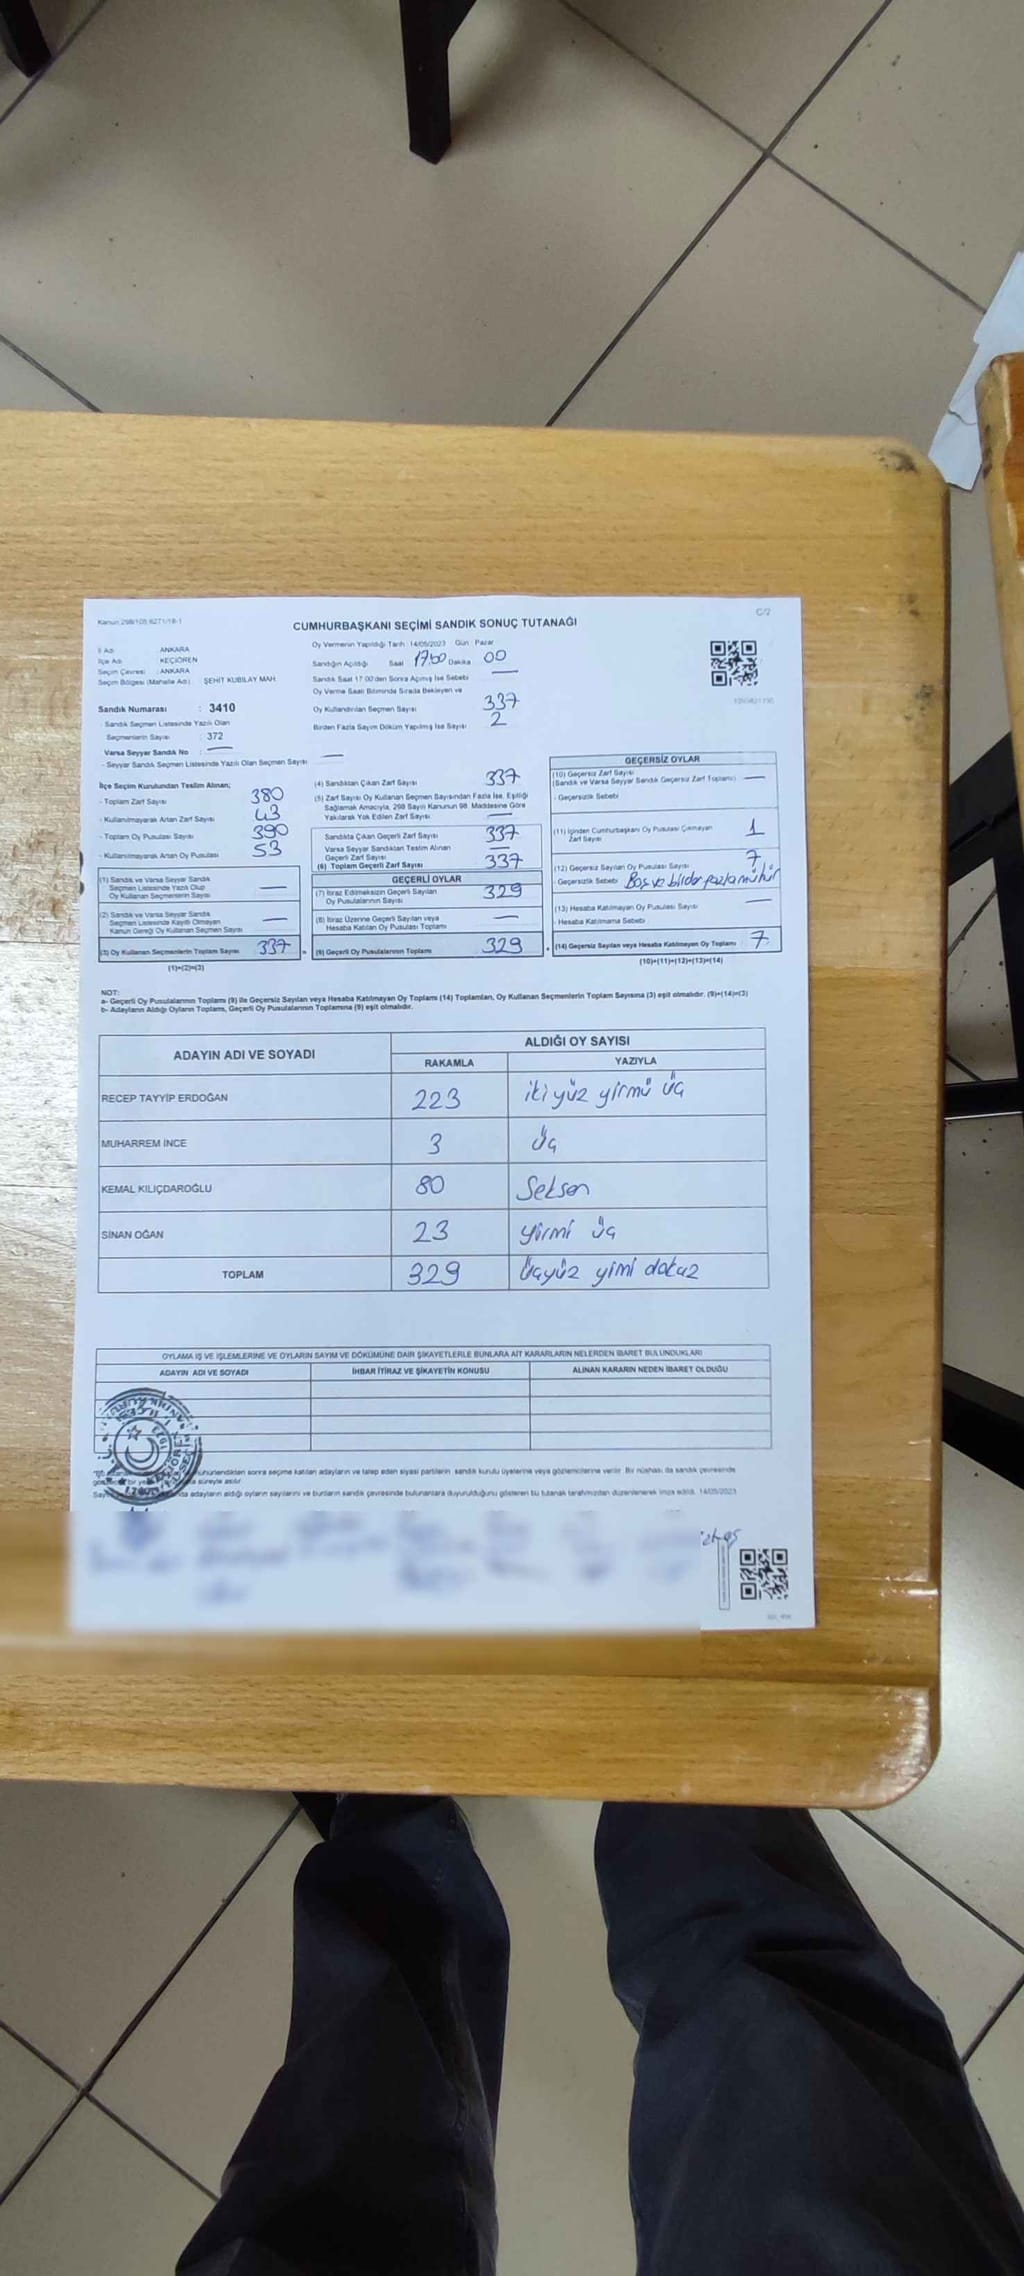 Kanun 298/105 6271/18-1
C/2
CUMHURBAŞKANI SEÇİMİ SANDIK SONUÇ TUTANAĞI
İl Adı : ANKARA
İlçe Adı : KEÇİÖREN
Seçim Çevresi : ANKARA
Seçim Bölgesi (Mahalle Adı) : ŞEHİT KUBİLAY MAH.
Sandık Numarası : 3410
- Sandık Seçmen Listesinde Yazılı Olan
Seçmenlerin Sayısı : 372
Varsa Seyyar Sandık No : —
- Seyyar Sandık Seçmen Listesinde Yazılı Olan Seçmen Sayısı —
Oy Vermenin Yapıldığı Tarih : 14/05/2023 Gün : Pazar
Sandığın Açıldığı Saat 17:00 Dakika 00
Sandık Saat 17:00'den Sonra Açılmış İse Sebebi —
Oy Verme Saati Bitiminde Sırada Bekleyen ve
Oy Kullandırılan Seçmen Sayısı 337
Birden Fazla Sayım Döküm Yapılmış İse Sayısı 2
İlçe Seçim Kurulundan Teslim Alınan;
- Toplam Zarf Sayısı 380
- Kullanılmayarak Artan Zarf Sayısı 43
- Toplam Oy Pusulası Sayısı 390
- Kullanılmayarak Artan Oy Pusulası 53
(1) Sandık ve Varsa Seyyar Sandık
Seçmen Listesinde Yazılı Olup
Oy Kullanan Seçmenlerin Sayısı —
(2) Sandık ve Varsa Seyyar Sandık
Seçmen Listesinde Kayıtlı Olmayan
Kanun Gereği Oy Kullanan Seçmen Sayısı —
(3) Oy Kullanan Seçmenlerin Toplam Sayısı 337
(1)+(2)=(3)
(4) Sandıktan Çıkan Zarf Sayısı 337
(5) Zarf Sayısı Oy Kullanan Seçmen Sayısından Fazla İse, Eşitliği
Sağlamak Amacıyla, 298 Sayılı Kanunun 98. Maddesine Göre
Yakılarak Yok Edilen Zarf Sayısı —
Sandıkta Çıkan Geçerli Zarf Sayısı 337
Varsa Seyyar Sandıktan Teslim Alınan
Geçerli Zarf Sayısı —
(6) Toplam Geçerli Zarf Sayısı 337
GEÇERLİ OYLAR
(7) İtiraz Edilmeksizin Geçerli Sayılan
Oy Pusulalarının Sayısı 329
(8) İtiraz Üzerine Geçerli Sayılan veya
Hesaba Katılan Oy Pusulası Toplamı —
(9) Geçerli Oy Pusulalarının Toplamı 329
GEÇERSİZ OYLAR
(10) Geçersiz Zarf Sayısı
(Sandık ve Varsa Seyyar Sandık Geçersiz Zarf Toplamı) —
- Geçersizlik Sebebi
(11) İçinden Cumhurbaşkanı Oy Pusulası Çıkmayan
Zarf Sayısı 1
(12) Geçersiz Sayılan Oy Pusulası Sayısı 7
- Geçersizlik Sebebi Boş ve birden fazla mühür
(13) Hesaba Katılmayan Oy Pusulası Sayısı —
- Hesaba Katılmama Sebebi
(14) Geçersiz Sayılan veya Hesaba Katılmayan Oy Toplamı 7
(10)+(11)+(12)+(13)=(14)
NOT:
a- Geçerli Oy Pusulalarının Toplamı (9) ile Geçersiz Sayılan veya Hesaba Katılmayan Oy Toplamı (14) Toplamları, Oy Kullanan Seçmenlerin Toplam Sayısına (3) eşit olmalıdır. (9)+(14)=(3)
b- Adayların Aldığı Oyların Toplamı, Geçerli Oy Pusulalarının Toplamına (9) eşit olmalıdır.
ADAYIN ADI VE SOYADI
ALDIĞI OY SAYISI
RAKAMLA YAZIYLA
RECEP TAYYİP ERDOĞAN 223 iki yüz yirmi üç
MUHARREM İNCE 3 üç
KEMAL KILIÇDAROĞLU 80 Seksen
SİNAN OĞAN 23 yirmi üç
TOPLAM 329 üçyüz yimi dokuz
OYLAMA İŞ VE İŞLEMLERİNE VE OYLARIN SAYIM VE DÖKÜMÜNE DAİR ŞİKAYETLERLE BUNLARA AİT KARARLARIN NELERDEN İBARET BULUNDUKLARI
ADAYIN ADI VE SOYADI
İHBAR İTİRAZ VE ŞİKAYETİN KONUSU
ALINAN KARARIN NEDEN İBARET OLDUĞU
mühürlendikten sonra seçime katılan adayların ve talep eden siyasi partilerin sandık kurulu üyelerine veya gözlemcilerine verilir. Bir nüshası da sandık çevresinde
süreyle asılır.
adayların aldığı oyların sayılarını ve bunların sandık çevresinde bulunanlara duyurulduğunu gösteren bu tutanak tarafımızdan düzenlenerek imza edildi. 14/05/2023